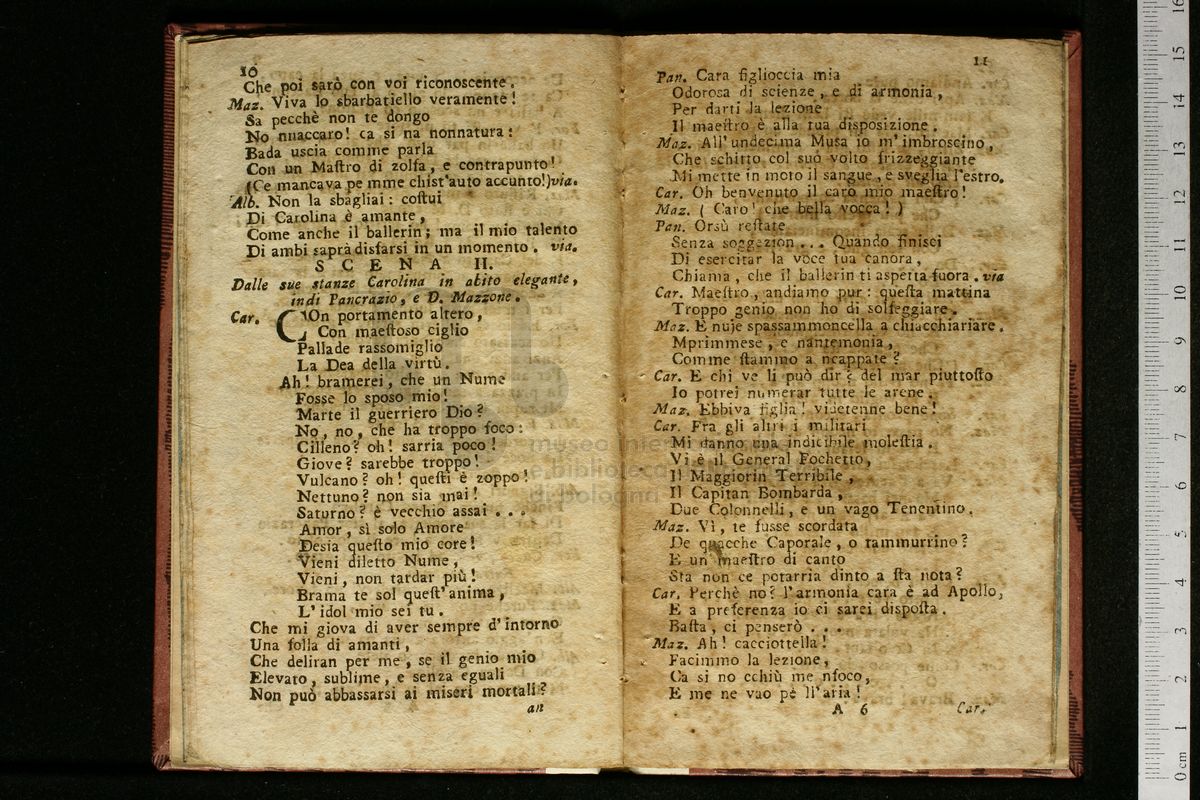 10
Che poi sarò con voi riconoscente.
Maz. Viva lo sbarbatiello veramente!
Sa pecchè non te dongo
No nnaccaro! ca si na nonnatura:
Bada uscia comme parla
Con un Maſtro di zolfa, e contrapunto!
(Ce mancava pe mme chist'auto accunto!) via.
Alb. Non la sbagliai: coſtui
Di Carolina è amante,
Come anche il ballerin; ma il mio talento
Di ambi saprà disfarsi in un momento. via.
SCENA II.
Dalle sue stanze Carolina in abito elegante,
indi Pancrazio, e D. Mazzone.
Car. COn portamento altero,
Con maeſtoso ciglio
Pallade rassomiglio
La Dea della virtù.
Ah! bramerei, che un Nume
Fosse lo sposo mio!
Marte il guerriero Dio?
No, no, che ha troppo foco:
Cilleno? oh! sarria poco!
Giove? sarebbe troppo!
Vulcano? oh! queſti è zoppo!
Nettuno? non sia mai!
Saturno? è vecchio assai...
Amor, sì solo Amore
Desia queſto mio core!
Vieni diletto Nume,
Vieni, non tardar più!
Brama te sol queſt'anima,
L'idol mio sei tu.
Che mi giova di aver sempre d'intorno
Una folla di amanti,
Che deliran per me, se il genio mio
Elevato, sublime, e senza eguali
Non può abbassarsi ai miseri mortali?
an
11
Pan. Cara figlioccia mia
Odorosa di scienze, e di armonia,
Per darti la lezione
Il maeſtro è alla tua disposizione.
Maz. All'undecima Musa io m'imbroscino,
Che schitto col suo volto frizzeggiante
Mi mette in moto il sangue, e sveglia l'estro.
Car. Oh benvenuto il caro mio maeſtro!
Maz. (Caro! che bella vocca!)
Pan. Orsù reſtate
Senza soggezion... Quando finisci
Di esercitar la voce tua canora,
Chiama, che il ballerin ti aspetta fuora. via
Car. Maeſtro, andiamo pur: queſta mattina
Troppo genio non ho di solfeggiare.
Maz. E nuje spassammoncella a chiacchiariare.
Mprimmese, e nantemonia,
Comme ſtammo a ncappate?
Car. E chi ve li può dir? del mar piuttoſto
Io potrei numerar tutte le arene.
Maz. Ebbiva figlia! videtenne bene!
Car. Fra gli altri i militari
Mi danno una indicibile moleſtia.
Vi è il General Fochetto,
Il Maggiorin Terribile,
Il Capitan Bombarda,
Due Colonnelli, e un vago Tenentino.
Maz. Vì, te fusse scordata
De quacche Caporale, o tammurrino?
E un maeſtro di canto
Sta non ce potarria dinto a ſta nota?
Car. Perchè no? l'armonia cara è ad Apollo,
E a preferenza io ci sarei disposta.
Baſta, ci penserò...
Maz. Ah! cacciottella!
Facimmo la lezione,
Ca si no cchiù me nfoco,
E me ne vao pè ll'aria!
A 6
Car.
museo
e biblioteca
di bologna
16
15
14
13
12
11
10
9
8
7
6
5
4
3
2
1
0 cm